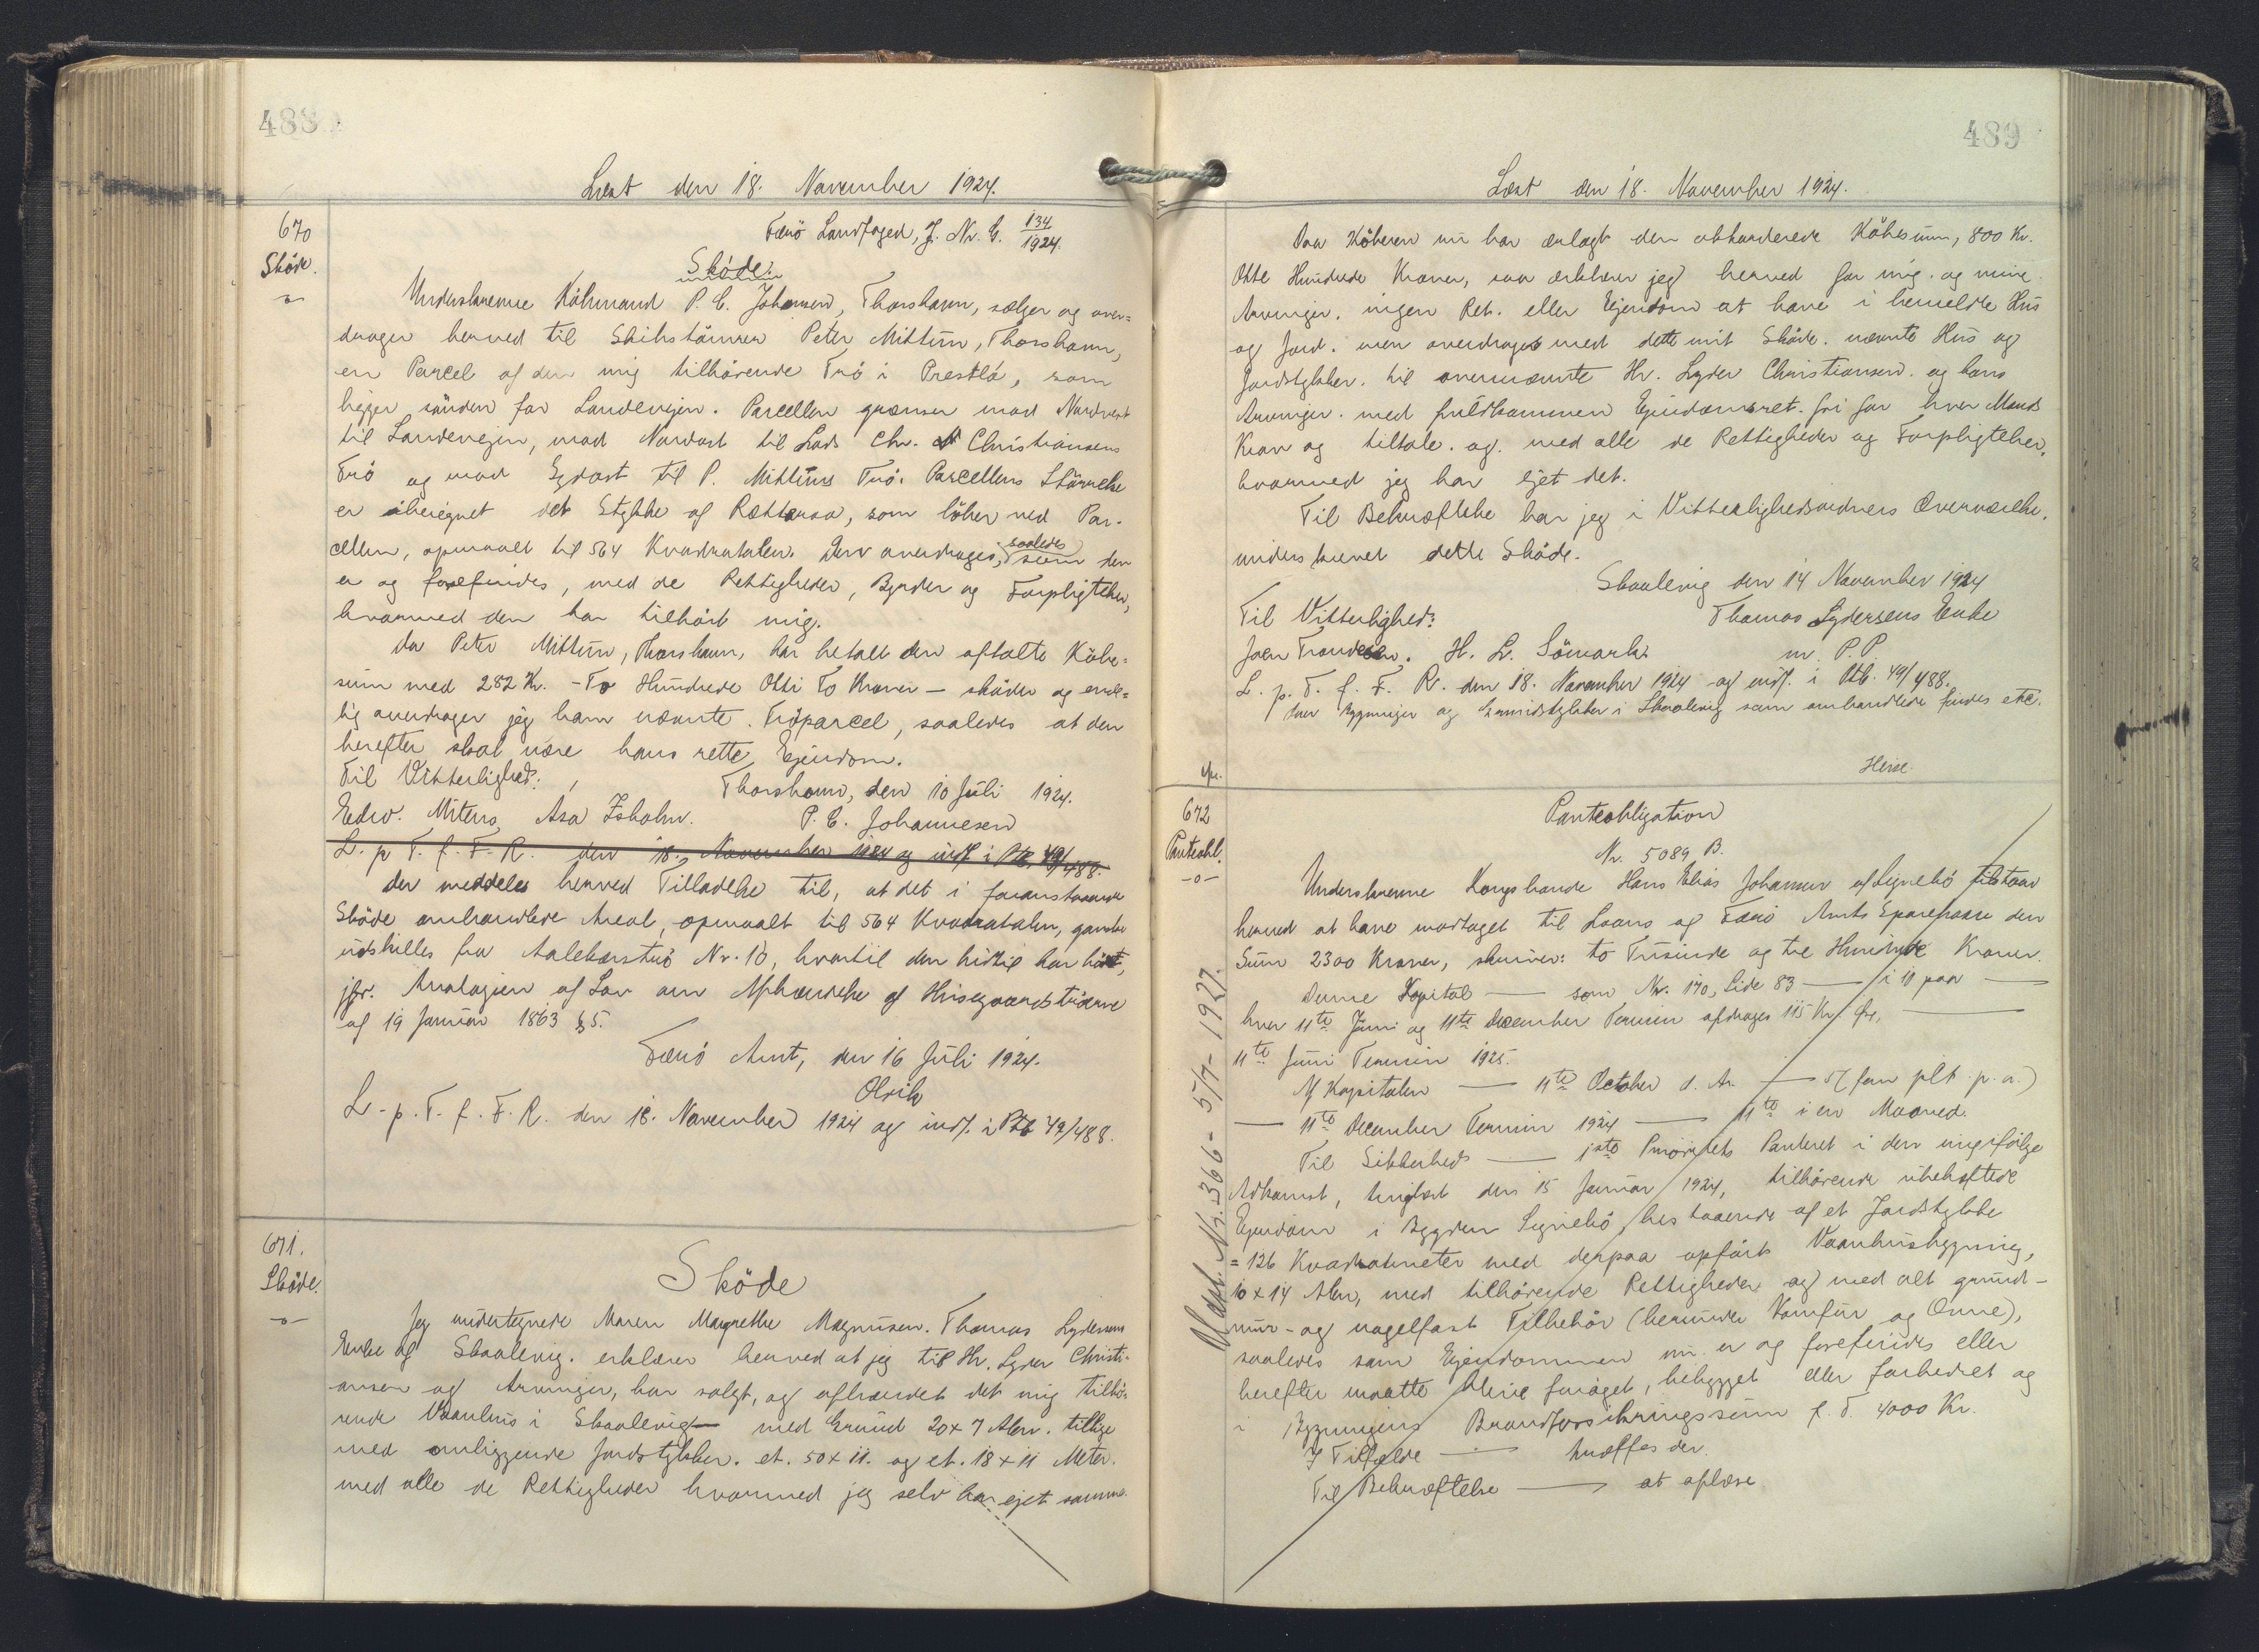 488
Læst den 18. November 1924.
670
Sköde.
Færö Landfoged, J. Nr. G. 134/1924.
Sköde.
Underskrevne Köbmand P. C. Johannesen, Thorshavn, sælger og over=
drager herved til Skibstömrer Peter Mittún, Thorshavn,
en Parcel af den mig tilhörende Trö i Prestlá, som
ligger sönden for Landevejen. Parcellen grænser mod Nordvest
til Landevejen, mod Nordost til Lads Chr. Christiansens
Trö og mod Sydost til P. Mittúns Trö. Parcellens Störrelse
er iberegnet det Stykke af Rættaraa, som löber ved Par-
cellen, opmaalt til 564 Kvadratalen. Den overdrages, saaledes som den
er og forefindes, med de Rettigheder, Byrder og Forpligtelser,
hvormed den har tilhört mig.
Da Peter Mittún, Thorshavn, har betalt den aftalte Köbe=
sum med 282 Kr. - To Hundrede Otti To Kroner - sköder og ende=
lig overdrager jeg ham nævnte Tröparcel, saaledes at den
herefter skal være hans rette Ejendom.
Til Vitterlighed:
Thorshavn, den 10 Juli 1924.
Edw. Mitens, Asa Isholm.
P. C. Johannesen
L. p. T. f. F. R. den 18. November 1924 og indf. i Ptb. 49/488.
Der meddeles herved Tilladelse til, at det i foranstaaende
Sköde omhandlede Areal, opmaalt til 564 Kvadratalen, ganske
udskilles fra Aalekærstrø Nr. 10, hvortil den hidtil har hört,
jfr. Analogien af Lov om Afhændelse af Husegaardstöerne
af 19 Januar 1863 § 5.
Færö Amt, den 16 Juli 1924.
Olrik
L. p. T. f. F. R. den 18. November 1924 og indf. i Ptb 49/488.
671.
Sköde.
-o-
Sköde
Jeg undertegnede Maren Magrethe Magnusen. Thomas Lydersens
Enke af Skaalevig. erklærer herved at jeg til Hr. Lyder Christi-
ansen og Arvinger, har solgt, og afhændet det mig tilhö-
rende Vaanhus i Skaalevig med Grund 20 x 7 Alen. tillige
med omliggende Jordstykker. et. 50 x 11. og et. 18 x 11 Meter.
med alle de Rettigheder hvormed jeg selv har ejet samme.
489
Læst den 18. November 1924.
Daa Köberen nu har erlagt den akkorderede Köbesum, 800 Kr.
Otte Hundrede Kroner, saa erklærer jeg herved for mig. og mine
Arvinger. ingen Ret. eller Ejendom at have i bemeldte Hus
og Jord. men overdrages med dette mit Sköde. nævnte Hus og
Jordstykker. til overnævnte Hr. Lyder Christiansen. og hans
Arvinger. med fuldkommen Ejendomsret. fri for hver Mands
Krav og tiltale. og. med alle de Rettigheder og Forpligtelser,
hvormed jeg har ejet det.
Til Bekræftelse har jeg i Vitterlighedsvidners Overværelse.
underskrevet dette Sköde.
Skaalevig den 14 November 1924
Til Vitterlighed:
Thomas Lydersens Enke
Joen Trondesen. H. L. Sömark.
m. P. P
L. p. T. f. F. R. den 18. November 1924 og indf. i Ptb. 49/488.
hver Bygninger og Grundstykker i Skaalevig som omhandlede findes etc.
Heise.
672
Panteobl.
-o-
Panteobligation
Nr. 5089 B.
Underskrevne Kongsbonde Hans Elias Johansen af Signebö tilstaar
herved at have modtaget til Laans af Færö Amts Sparekasse den
Sum 2300 Kroner, skriver: to Tusinde og tre Hundrede Kroner.
Denne Kapital — som Nr. 170, Side 83 — i 10 paa —
hver 11te Juni og 11te December Termin afdrages 115 Kr. —
11te Juni Termin 1925.
Af Kapitalen — 11te October d. Ar. — 5 (fem pCt. p. a.)
— 11te December Termin 1924 — 11te i en Maaned.
Til Sikkerhed — 1ste Prioritets Panteret i den mig ifölge
Adkomst, tinglæst den 15 Januar 1924, tilhörende ubehæftede
Ejendom i Bygden Signebö bestaaende af et Jordstykke
= 126 Kvadratmeter med derpaa opfört Vaanhusbygning,
10 x 14 Alen, med tilhörende Rettigheder og med alt grund-
mur- og nagelfast Tilbehör (herunder Komfur og Ovne),
saaledes som Ejendommen nu er og forefindes eller
herefter maatte blive foröget, bebygget eller forbedret og
i Bygningens Brandforsikringssum f. T. 4000 Kr.
I Tilfælde — træffes der.
Til Bekræftelse — at aflæse
Udsl. Nr. 366 - 5/7 - 1927.